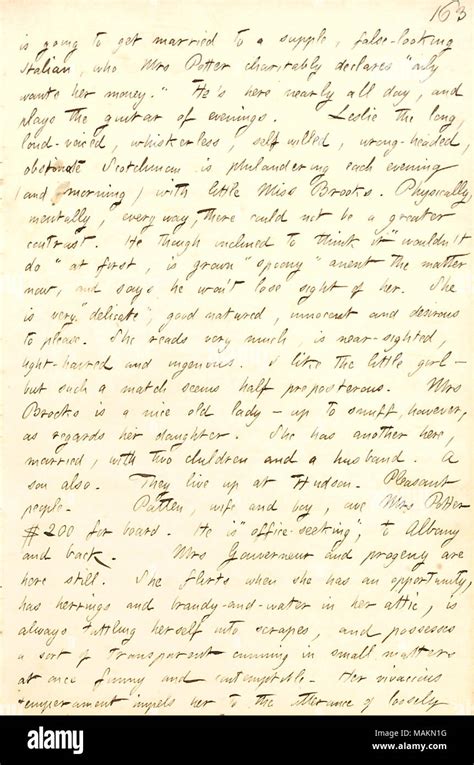 163
is going to get married to a supple, false-looking
Italian, who Mrs Potter charitably declares "only
wants her money." He's here nearly all day, and
plays the guitar of evenings. Leslie the long,
loud-voiced, whiskerless, self willed, wrong-headed,
obstinate Scotchman is philandering each evening
(and morning) with little Miss Brooks. Physically,
mentally, every way, there could not be a greater
contrast. He though inclined to think it "wouldn't
do" at first, is grown "spoony" anent the matter
now, and says he won't lose sight of her. She
is very "delicate", good natured, innocent and desirous
to please. She reads very much, is near-sighted,
light-haired and ingenuous. I like the little girl —
but such a match seems half preposterous. Mrs
Brooks is a nice old lady — up to snuff, however,
as regards her daughter. She has another here,
married, with two children and a husband. A
son also. They live up at Hudson. Pleasant
people. Patten, wife and boy, owe Mrs Potter
$200 for board. He is "office-seeking"; to Albany
and back. Mrs Gouverneur and progeny are
here still. She flirts when she has an opportunity,
has herrings and brandy-and-water in her attic, is
always tattling herself into scrapes, and possesses
a sort of transparent cunning in small matters
at once funny and contemptible. Her vivacious
temperament impels her to the utterance of loosely
alamy
alamy
Image ID: MAKN1G
www.alamy.com